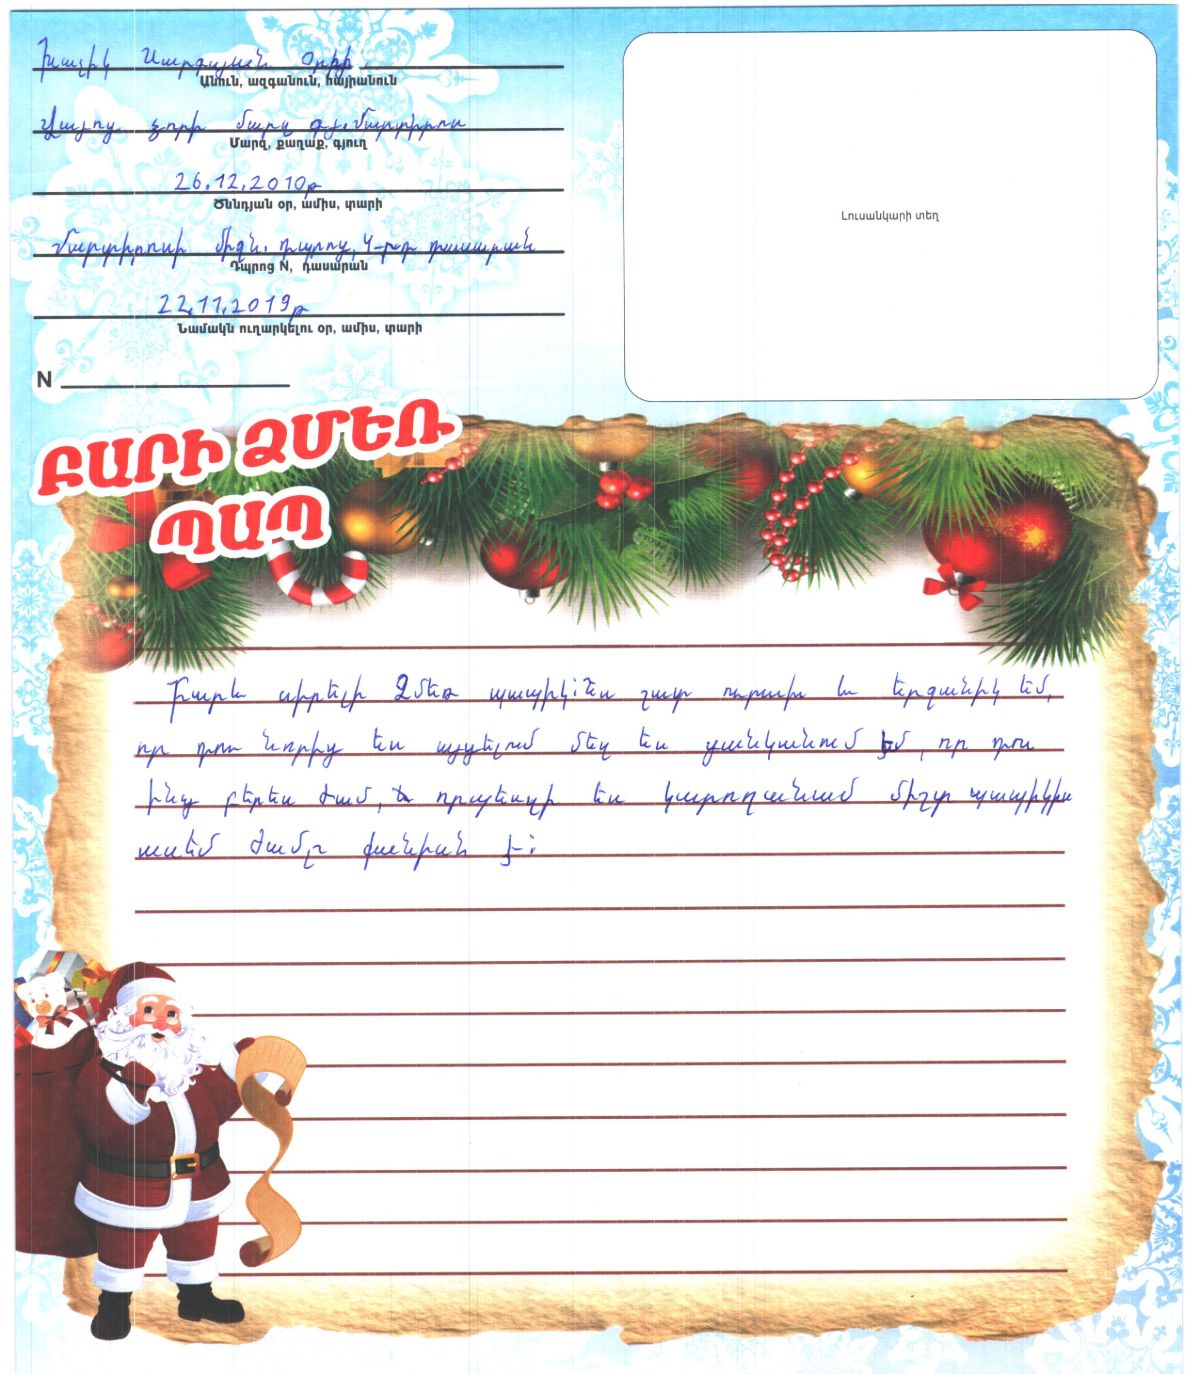 Խաչիկ Սարգսյան Օրիի.
Անուն, ազգանուն, հայրանուն
Վայոց ձորի մարզ գյ.Մարտիրոս
Մարզ, քաղաք, գյուղ
26.12.2010թ
Ծննդյան օր, ամիս, տարի
Մարտիրոսի միջն. դպրոց, 4-րդ դասարան
Դպրոց N, դասարան
22.11.2019թ
Նամակն ուղարկելու օր, ամիս, տարի
N
Լուսանկարի տեղ
ԲԱՐԻ ՁՄԵՌ
ՊԱՊ
Բարև սիրելի Ձմեռ պապիկ։Ես շատ ուրախ և երջանիկ եմ,
որ դու նորից ես այցելում մեզ ես ցանկանում եմ, որ դու
ինձ բերես ժամ, որպեսզի ես կարողանամ միշտ պապիկիս
ասեմ ժամը քանիսն է։